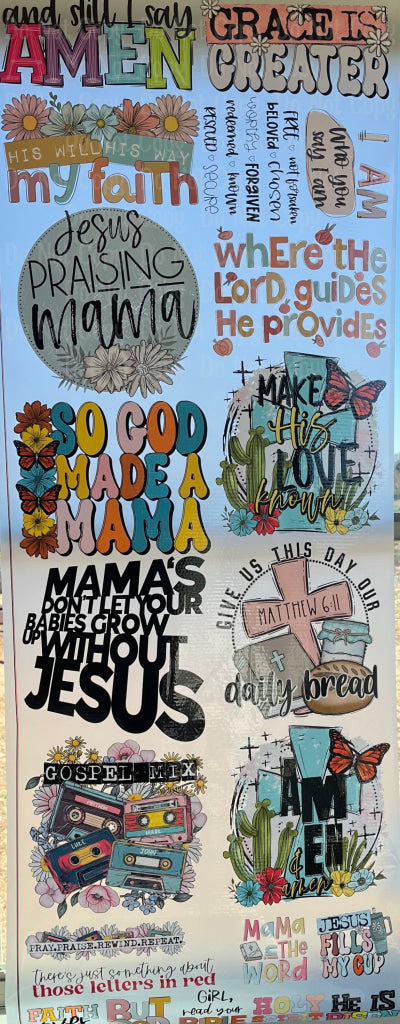 and still I say
AMEN
GRACE IS
GREATER
HIS WILL HIS WAY
my faith
FREE ○ not forsaken
BELOVED ○ chosen
WORTHY ○ FORGIVEN
redeemed ○ known
RESCUED ○ SECURE
Who you
say I am
I AM
Jesus
PRAISING
mama
wheRe tHe
LoRD guiDeS
He pRoviDeS
SO GOD
MADE A
MAMA
MAKE
His
LOVE
known
MAMA'S
DON'T LET YOUR
BABIES GROW
UP WITHOUT
JESUS
GIVE US THIS DAY OUR
MATTHEW 6:11
daily bread
GOSPEL MIX
MATTHEW
MARK
LUKE
JOHN
AM
EN
&
amen
PRAY.PRAISE.REWIND.REPEAT.
there's just something about
those letters in red
MaMa
IN THE
WORD
JESUS
FILLS
MY CUP
FAITH
BUT
GIRL,
read your
HOLY
HE IS